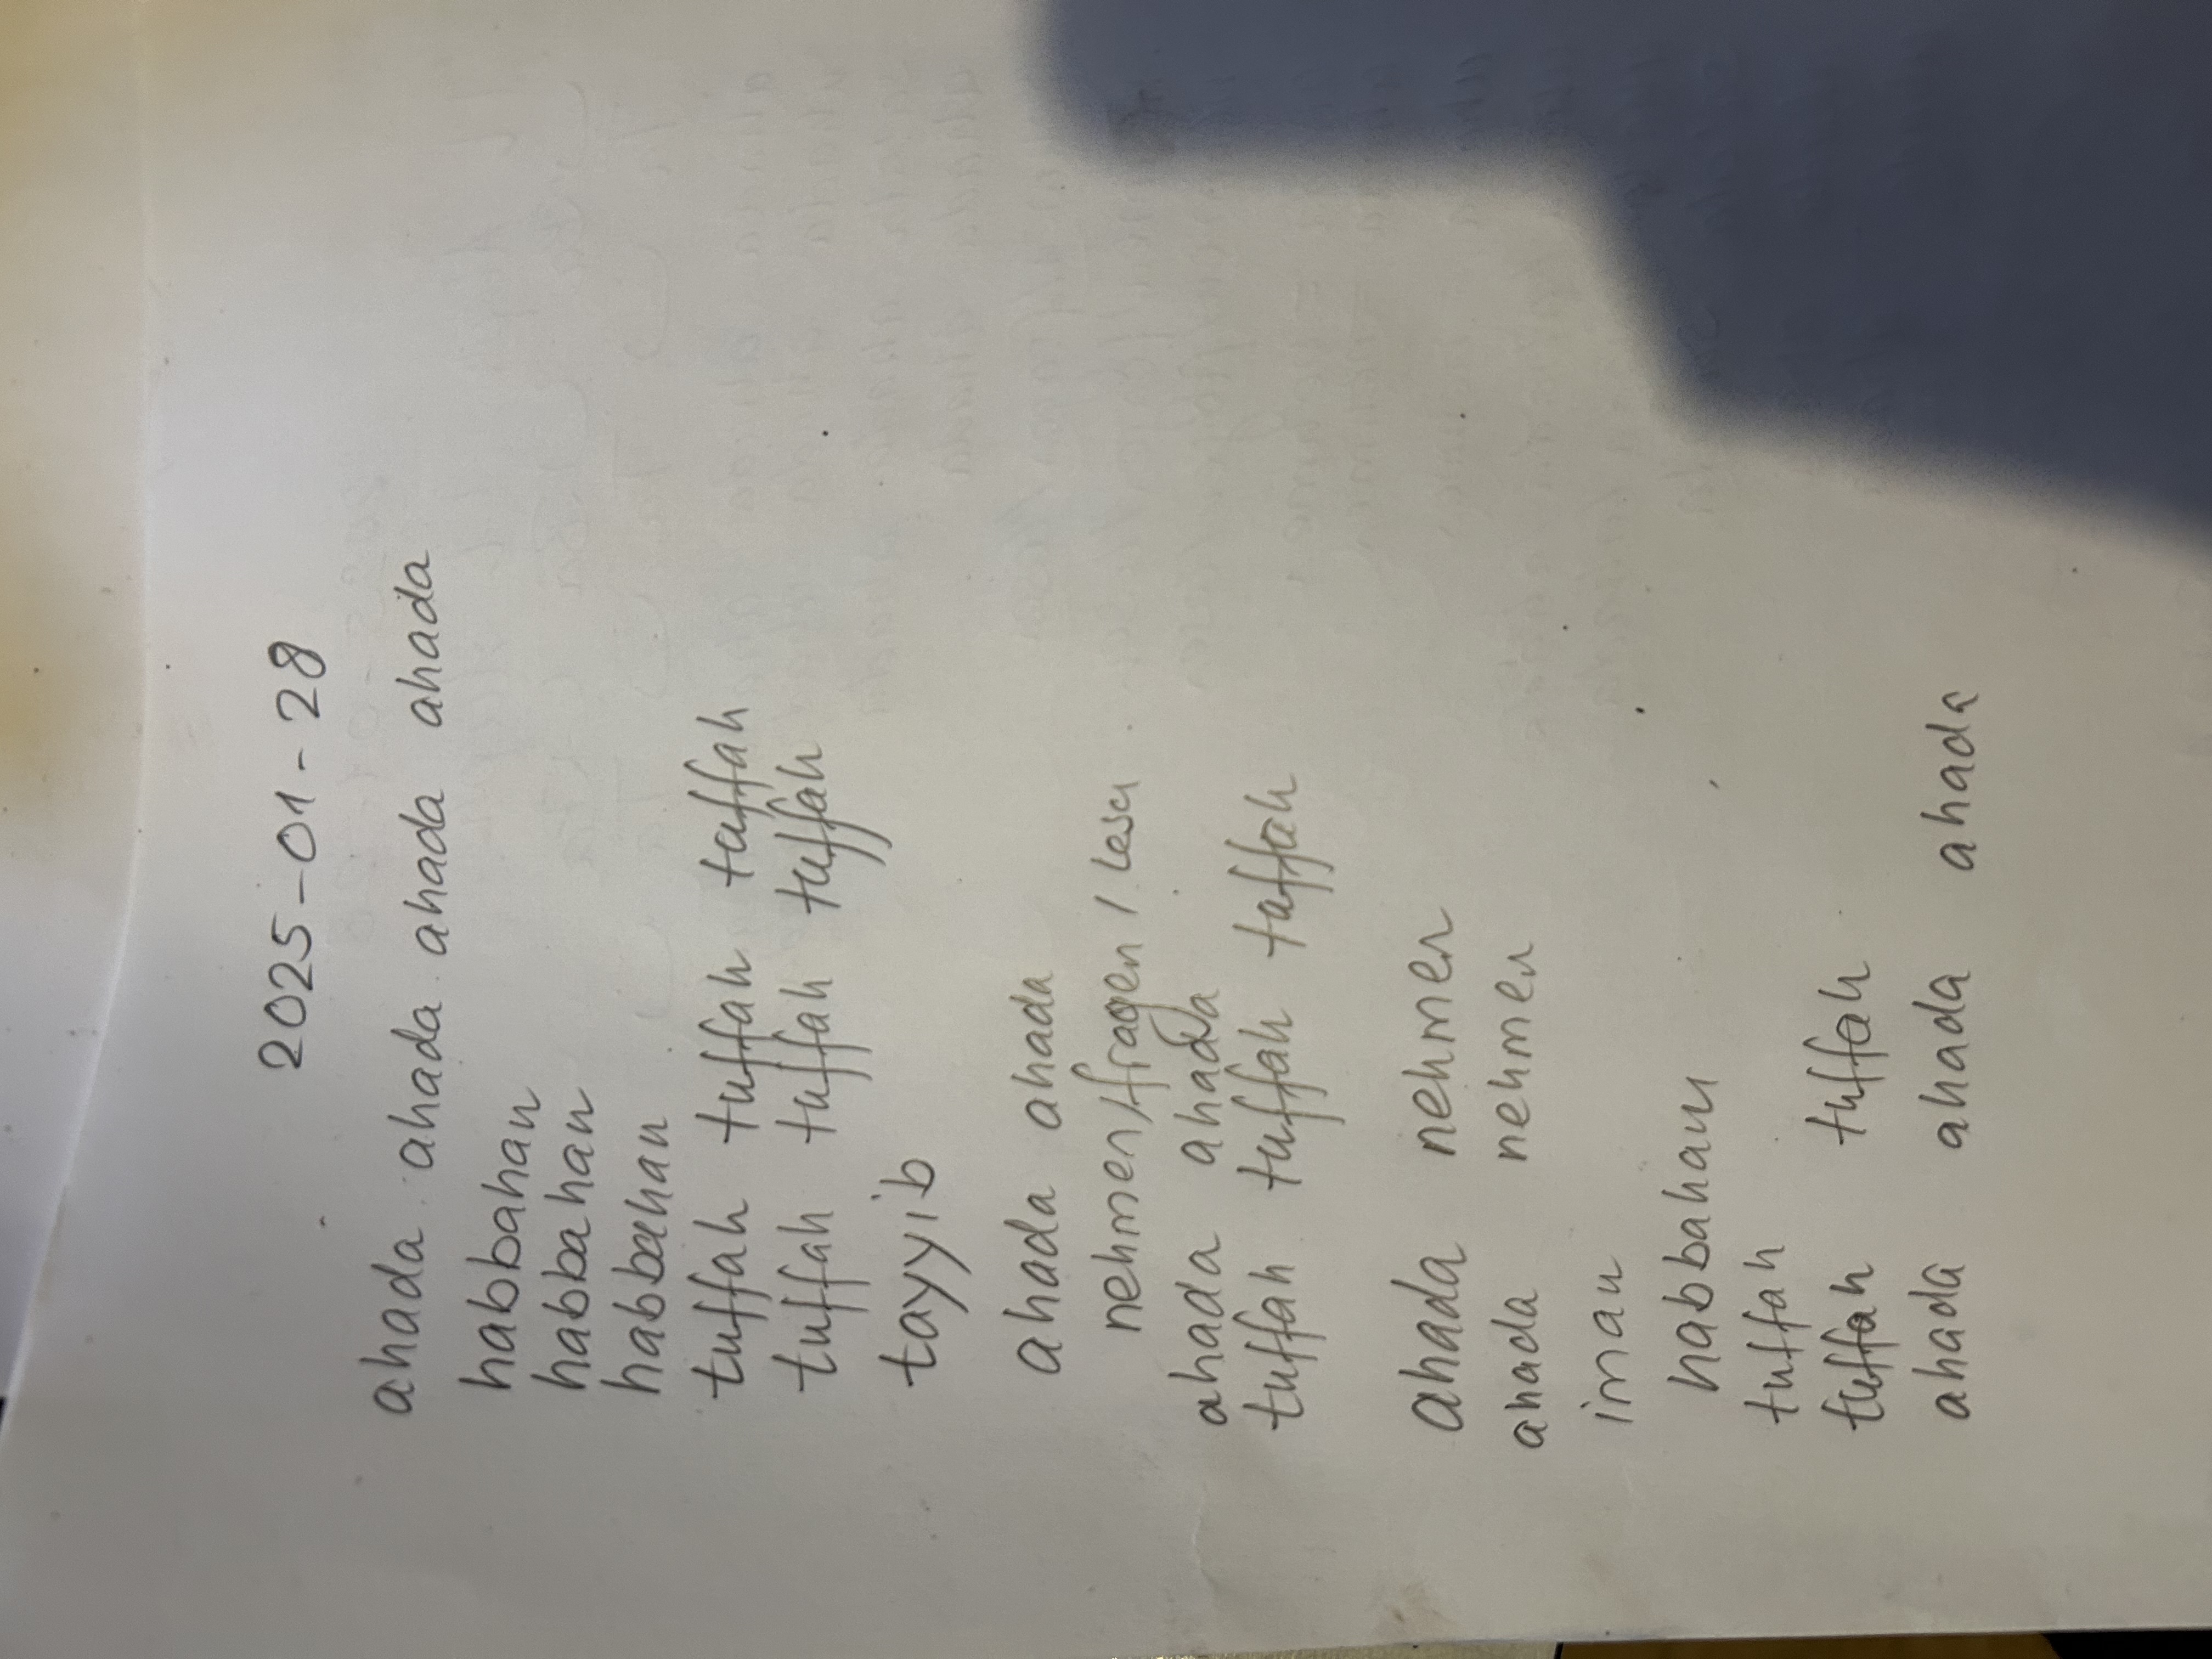 2025-01-28
ahada ahada ahada ahada
habbahan
habbahan
habbahan
tuffah tuffah tuffah
tuffah tuffah tuffah
tayyib
ahada ahada
nehmen/fragen/lesen
ahada ahada
tuffah tuffah tuffah
ahada nehmen
ahada nehmen
iman
habbahan
tuffah
tuffah tuffah
ahada ahada ahada